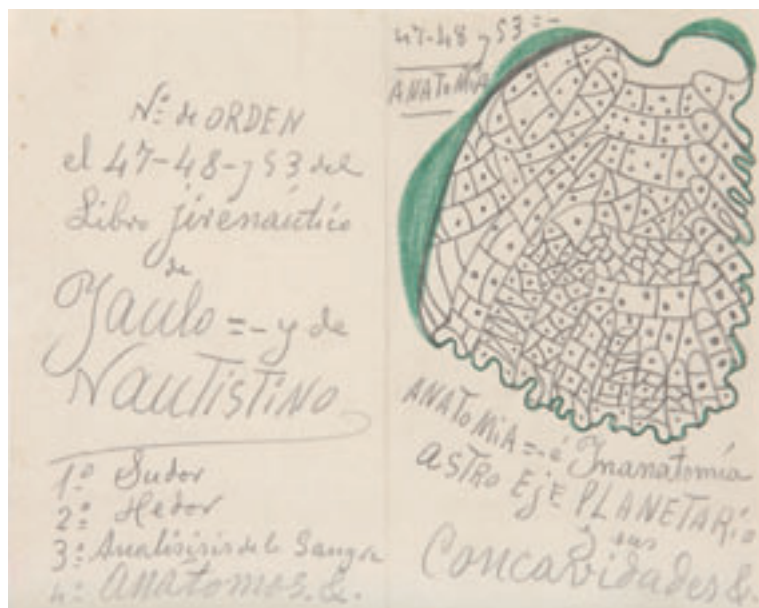 Nº de ORDEN
el 47-48-y 53 del
Libro jirenautico
de
Yaulo =- y de
NAUTISTINO
1º Sudor
2º Hedor
3º Analisisis de la Sangre
4º ANATOMOS. &.
47-48 y 53 =-
ANATOMIA
ANATOMIA =- é Inanatomía
ASTRO EjE PLANETARio
y sus
Concavidades &.